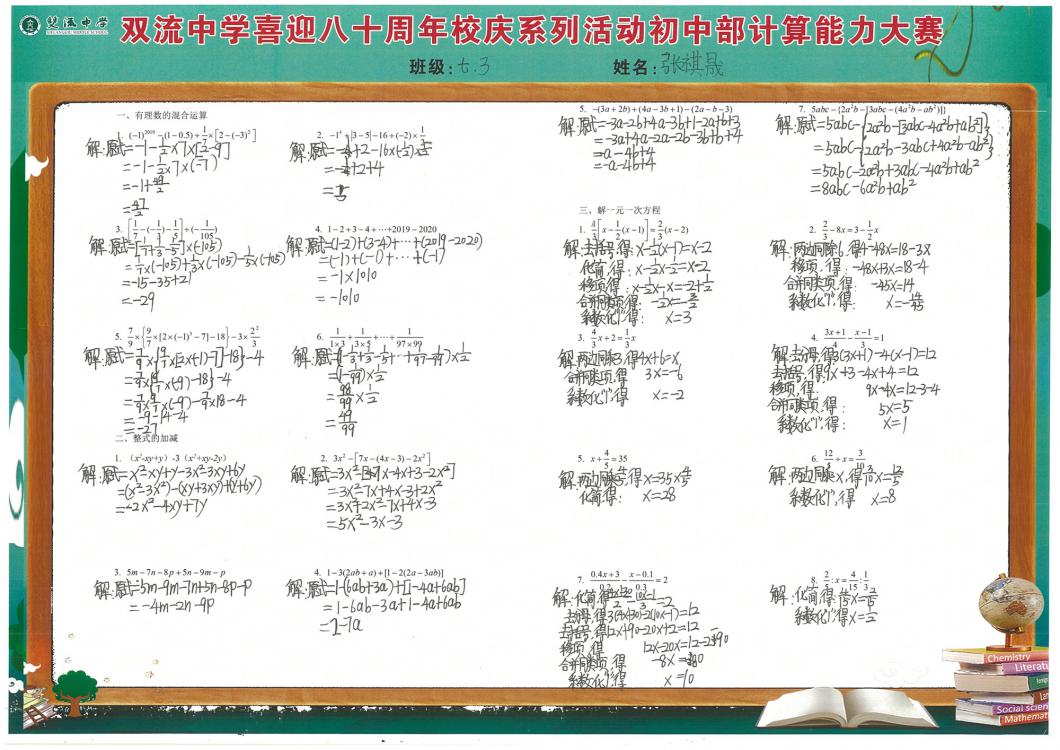 双流中学
双流中学喜迎八十周年校庆系列活动初中部计算能力大赛
班级:七.3 姓名:张祺晟
一、有理数的混合运算
1. (-1)²⁰¹⁹-(1-0.5)÷1/3×[2-(-3)²]
=-1+49/2
=47/2
2. -1⁴+|3-5|-16÷(-2)×1/2
3. [1/7-(-1/3)-1/5]÷(-1/105)
=1/7×(-105)+1/3×(-105)-1/5×(-105)
=-15-35+21
=-29
4. 1-2+3-4+…+2019-2020
解:原式=(1-2)+(3-4)+…+(2019-2020)
=(-1)+(-1)+…+(-1)
=-1×1010
=-1010
5. 7/9×{9/7×[2×(-1)³-7]-18}-3×2²/3
=7/9×9/7×(-9)-7/9×18-4
=-9-14-4
=-27
6. 1/(1×3)+1/(3×5)+…+1/(97×99)
=(1-1/99)×1/2
=98/99×1/2
=49/99
二、整式的加减
1. (x²-xy+y)-3(x²+xy-2y)
解:原式=x²-xy+y-3x²-3xy+6y
=(x²-3x²)-(xy+3xy)+(y+6y)
=-2x²-4xy+7y
2. 3x²-[7x-(4x-3)-2x²]
=3x²-7x+4x-3+2x²
=3x²+2x²-7x+4x-3
=5x²-3x-3
3. 5m-7n-8p+5n-9m-p
解:原式=5m-9m-7n+5n-8p-p
=-4m-2n-9p
4. 1-3(2ab+a)+[1-2(2a-3ab)]
解:原式=1-(6ab+3a)+[1-4a+6ab]
=1-6ab-3a+1-4a+6ab
=2-7a
5. -(3a+2b)+(4a-3b+1)-(2a-b-3)
解:原式=-3a-2b+4a-3b+1-2a+b+3
=-3a+4a-2a-2b-3b+b+4
=-a-4b+4
7. 5abc-{2a²b-[3abc-(4a²b-ab²)]}
解:原式=5abc-{2a²b-[3abc-4a²b+ab²]}
=5abc-{2a²b-3abc+4a²b-ab²}
=5abc-2a²b+3abc-4a²b+ab²
=8abc-6a²b+ab²
三、解一元一次方程
1. 4/3[x-1/2(x-1)]=2/3(x-2)
化简,得:x-1/2x+1/2=x-2
移项,得:x-1/2x-x=-2-1/2
x=3
2. 2/3-8x=3-1/2x
解:两边同乘6,得4-48x=18-3x
移项,得:-48x+3x=18-4
合并同类项,得:-45x=14
系数化"1",得:x=-14/45
3. 4/3x+2=1/3x
解:两边同乘3,得4x+6=x
合并同类项,得:3x=-6
系数化"1",得x=-2
4. (3x+1)/4-(x-1)/3=1
解:去分母,得3(3x+1)-4(x-1)=12
去括号,得9x+3-4x+4=12
移项,得:9x-4x=12-3-4
合并同类项,得:5x=5
系数化"1",得:x=1
5. x÷4/5=35
解:两边同乘4/5,得x=35×4/5
化简得:x=28
6. 12/5÷x=3/10
解:两边同乘x,得3/10x=12/5
系数化"1",得x=8
7. (0.4x+3)/0.2-(x-0.1)/0.3=2
去分母,得3(4x+30)-2(10x-1)=12
去括号,得12x+90-20x+2=12
移项,得12x-20x=12-2-90
合并同类项,得-8x=-80
系数化"1",得x=10
8. 2/5:x=4/15:1/3
解:化简,得4/15x=2/15
系数化"1",得x=1/2
Chemistry
Social scien